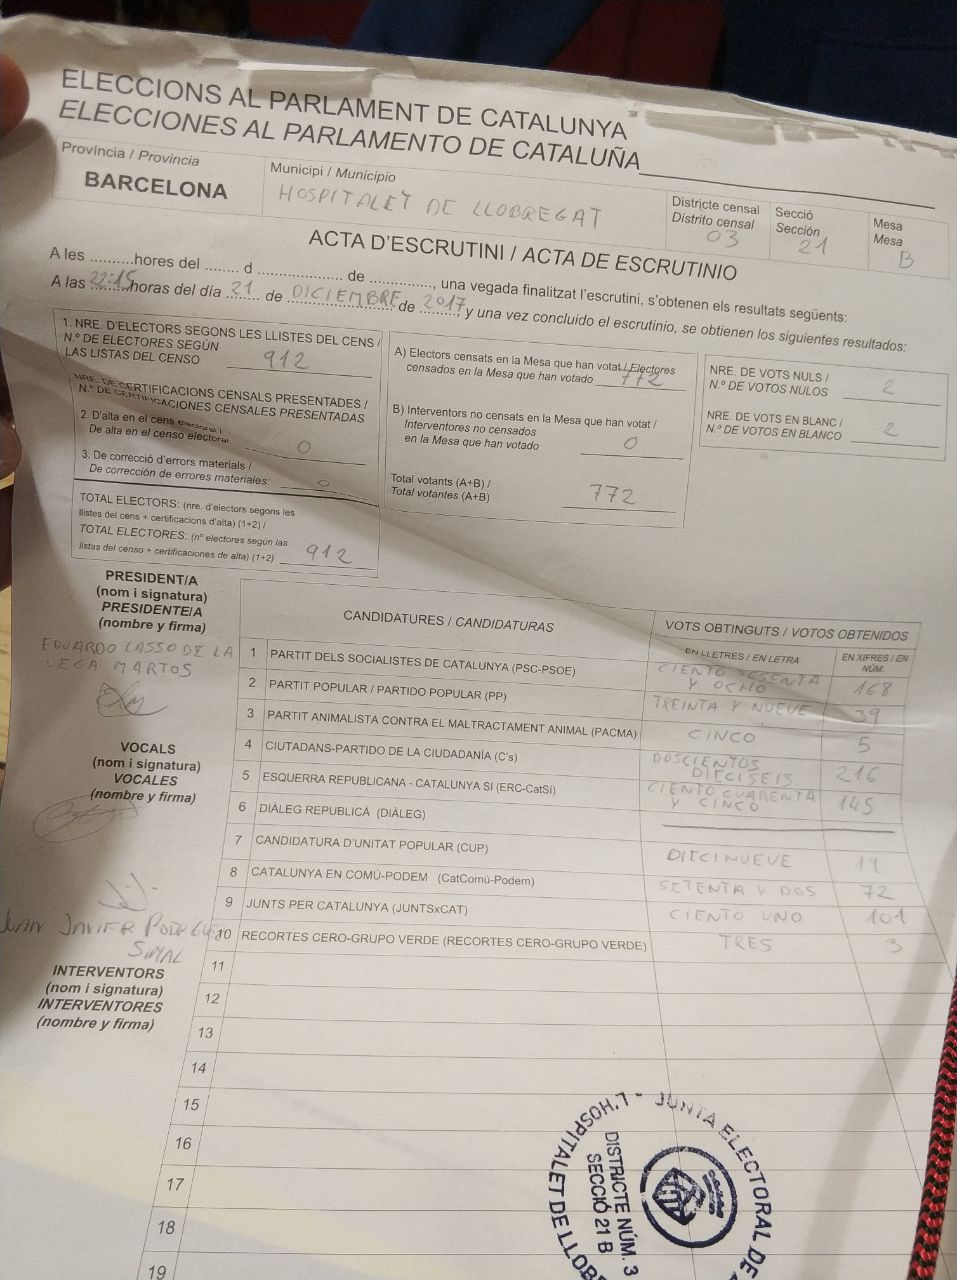 ELECCIONS AL PARLAMENT DE CATALUNYA
ELECCIONES AL PARLAMENTO DE CATALUÑA
Província / Provincia
BARCELONA
Municipi / Municipio
HOSPITALET DE LLOBREGAT
Districte censal
Distrito censal
03
Secció
Sección
21
Mesa
Mesa
B
ACTA D'ESCRUTINI / ACTA DE ESCRUTINIO
A les ..........hores del ........ d .................... de ..............., una vegada finalitzat l'escrutini, s'obtenen els resultats següents:
A las 22:15 horas del día 21 de DICIEMBRE de 2017, y una vez concluido el escrutinio, se obtienen los siguientes resultados:
1. NRE. D'ELECTORS SEGONS LES LLISTES DEL CENS /
N.º DE ELECTORES SEGÚN
LAS LISTAS DEL CENSO 912
NRE. DE CERTIFICACIONS CENSALS PRESENTADES /
N.º DE CERTIFICACIONES CENSALES PRESENTADAS
2. D'alta en el cens electoral /
De alta en el censo electoral: 0
3. De correcció d'errors materials /
De corrección de errores materiales: 0
TOTAL ELECTORS: (nre. d'electors segons les
llistes del cens + certificacions d'alta) (1+2) /
TOTAL ELECTORES: (nº electores según las
listas del censo + certificaciones de alta) (1+2) 912
A) Electors censats en la Mesa que han votat / Electores
censados en la Mesa que han votado 772
B) Interventors no censats en la Mesa que han votat /
Interventores no censados
en la Mesa que han votado 0
Total votants (A+B) /
Total votantes (A+B) 772
NRE. DE VOTS NULS /
N.º DE VOTOS NULOS 2
NRE. DE VOTS EN BLANC /
N.º DE VOTOS EN BLANCO 2
PRESIDENT/A
(nom i signatura)
PRESIDENTE/A
(nombre y firma)
EDUARDO LASSO DE LA
VEGA MARTOS
VOCALS
(nom i signatura)
VOCALES
(nombre y firma)
JUAN JAVIER
SIMAL
INTERVENTORS
(nom i signatura)
INTERVENTORES
(nombre y firma)
CANDIDATURES / CANDIDATURAS
VOTS OBTINGUTS / VOTOS OBTENIDOS
EN LLETRES / EN LETRA
EN XIFRES / EN
NÚM.
1 PARTIT DELS SOCIALISTES DE CATALUNYA (PSC-PSOE) CIENTO SESENTA Y OCHO 168
2 PARTIT POPULAR / PARTIDO POPULAR (PP) TREINTA Y NUEVE 39
3 PARTIT ANIMALISTA CONTRA EL MALTRACTAMENT ANIMAL (PACMA) CINCO 5
4 CIUTADANS-PARTIDO DE LA CIUDADANÍA (C's) DOSCIENTOS DIECISEIS 216
5 ESQUERRA REPUBLICANA - CATALUNYA SÍ (ERC-CatSí) CIENTO CUARENTA Y CINCO 145
6 DIÀLEG REPUBLICÀ (DIÀLEG)
7 CANDIDATURA D'UNITAT POPULAR (CUP) DIECINUEVE 19
8 CATALUNYA EN COMÚ-PODEM (CatComú-Podem) SETENTA Y DOS 72
9 JUNTS PER CATALUNYA (JUNTSxCAT) CIENTO UNO 101
10 RECORTES CERO-GRUPO VERDE (RECORTES CERO-GRUPO VERDE) TRES 3
11
12
13
14
15
16
17
18
19
JUNTA ELECTORAL DE
L'HOSPITALET DE LLOB
DISTRICTE NÚM. 3
SECCIÓ 21 B